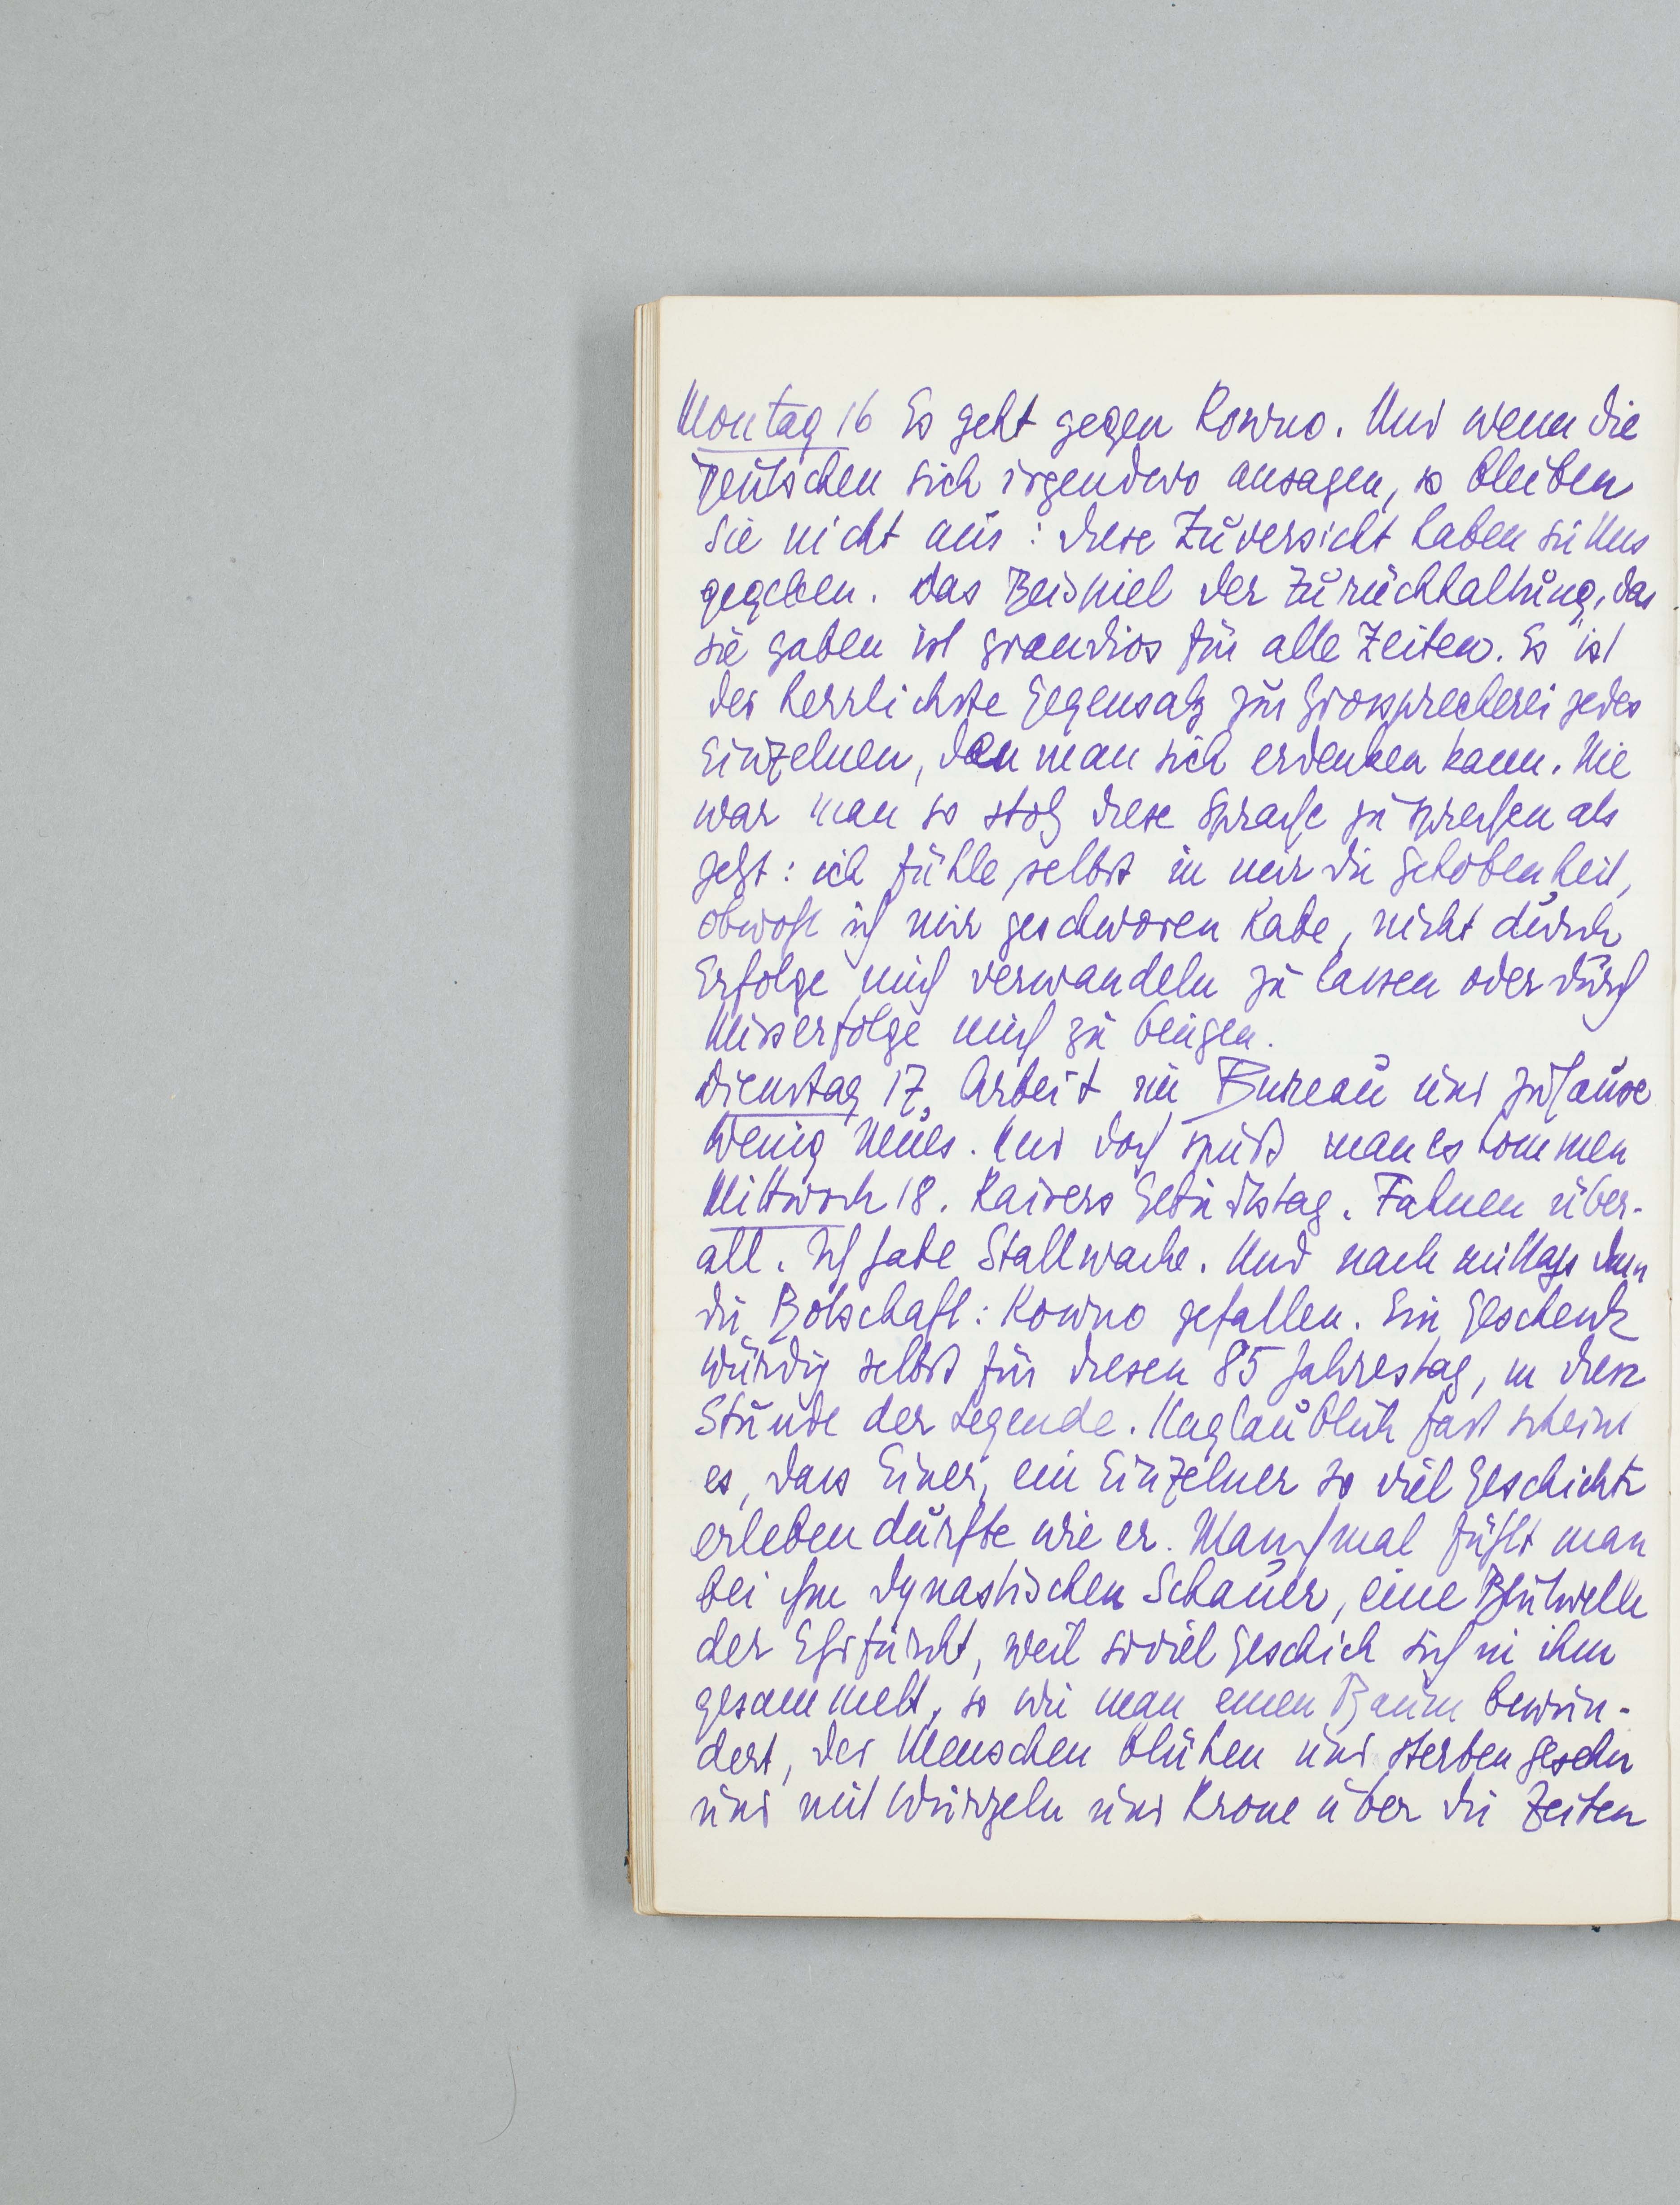 Montag 16 Es geht gegen Kowno. Und wenn die
Deutschen sich irgendwo ansagen, so bleiben
sie nicht aus: diese Zuversicht haben sie uns
gegeben. Das Beispiel der Zurückhaltung, das
sie gaben ist grandios für alle Zeiten. Es ist
der herrlichste Gegensatz zur Grossprecherei jedes
Einzelnen, den man sich erdenken kann. Nie
war man so stolz diese Sprache zu sprechen als
jetzt: ich fühle selbst in mir die Gehobenheit,
obwohl ich mir geschworen habe, nicht durch
Erfolge mich verwandeln zu lassen oder durch
Misserfolge mich zu beugen.
Dienstag 17, Arbeit im Bureau und zuhause
Wenig Neues. Und doch spürt man es kommen
Mittwoch 18. Kaisers Geburtstag. Fahnen über-
all. Ich habe Stallwache. Und nachmittags dann
die Botschaft: Kowno gefallen. Ein Geschenk
würdig selbst für diesen 85 Jahrestag, in dieser
Stunde der Legende. Unglaublich fast scheint
es, dass Einer, ein Einzelner so viel Geschichte
erleben durfte wie er. Manchmal fühlt man
bei ihm dynastischen Schauer, eine Blutwelle
der Ehrfurcht, weil soviel Geschick sich in ihm
gesammelt, so wie man einen Baum bewun-
dert, der Menschen blühen und sterben gesehn
und mit Wurzeln und Krone über die Zeiten